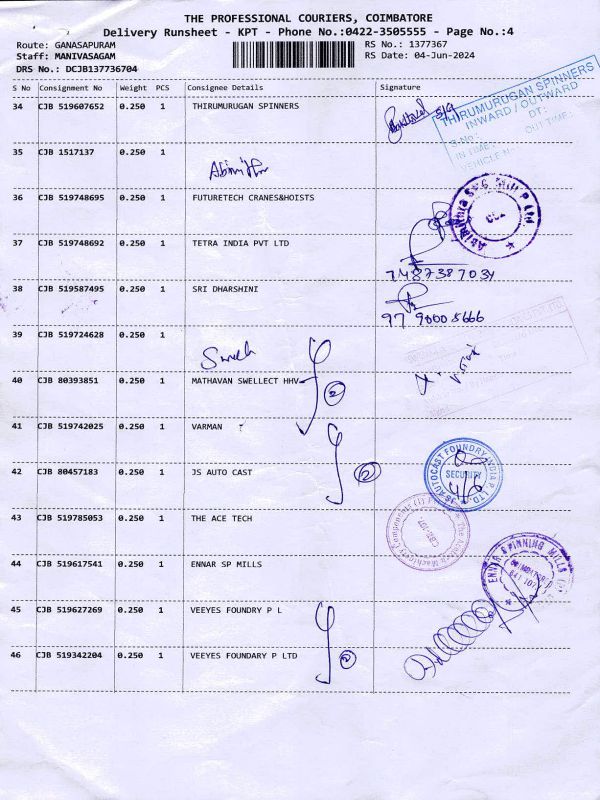 THE PROFESSIONAL COURIERS, COIMBATORE
Delivery Runsheet - KPT - Phone No.:0422-3505555 - Page No.:4
Route: GANASAPURAM
Staff: MANIVASAGAM
DRS No.: DCJB137736704
RS No.: 1377367
RS Date: 04-Jun-2024
S No Consignment No Weight PCS Consignee Details Signature
34 CJB 519607652 0.250 1 THIRUMURUGAN SPINNERS
THIRUMURUGAN SPINNERS
INWARD / OUTWARD
S.No.:
DT:
IN TIME:
OUT TIME:
VEHICLE N
35 CJB 1517137 0.250 1
36 CJB 519748695 0.250 1 FUTURETECH CRANES&HOISTS
37 CJB 519748692 0.250 1 TETRA INDIA PVT LTD
7487387034
38 CJB 519587495 0.250 1 SRI DHARSHINI
97 90005666
39 CJB 519724628 0.250 1
40 CJB 80393851 0.250 1 MATHAVAN SWELLECT HHV
2
41 CJB 519742025 0.250 1 VARMAN
42 CJB 80457183 0.250 1 JS AUTO CAST
2
JS AUTOCAST FOUNDRY INDIA P. LTD.
SECURITY
4/6
43 CJB 519785053 0.250 1 THE ACE TECH
44 CJB 519617541 0.250 1 ENNAR SP MILLS
ENNAR SPINNING MILLS (P) L
COIMBATORE
641 107
45 CJB 519627269 0.250 1 VEEYES FOUNDRY P L
46 CJB 519342204 0.250 1 VEEYES FOUNDARY P LTD
2